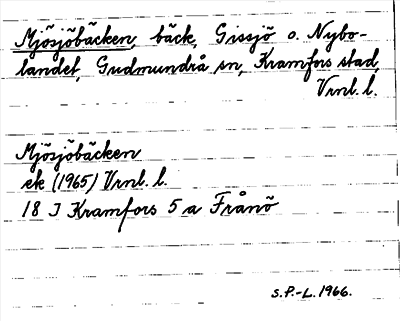 Mjösjöbäcken, bäck, Gissjö o. Nybo-
landet, Gudmundrå sn, Kramfors stad,
Vrnl. l.
Mjösjöbäcken
ek (1965) Vrnl. l.
18 I Kramfors 5 a Frånö
S.P.-L. 1966.